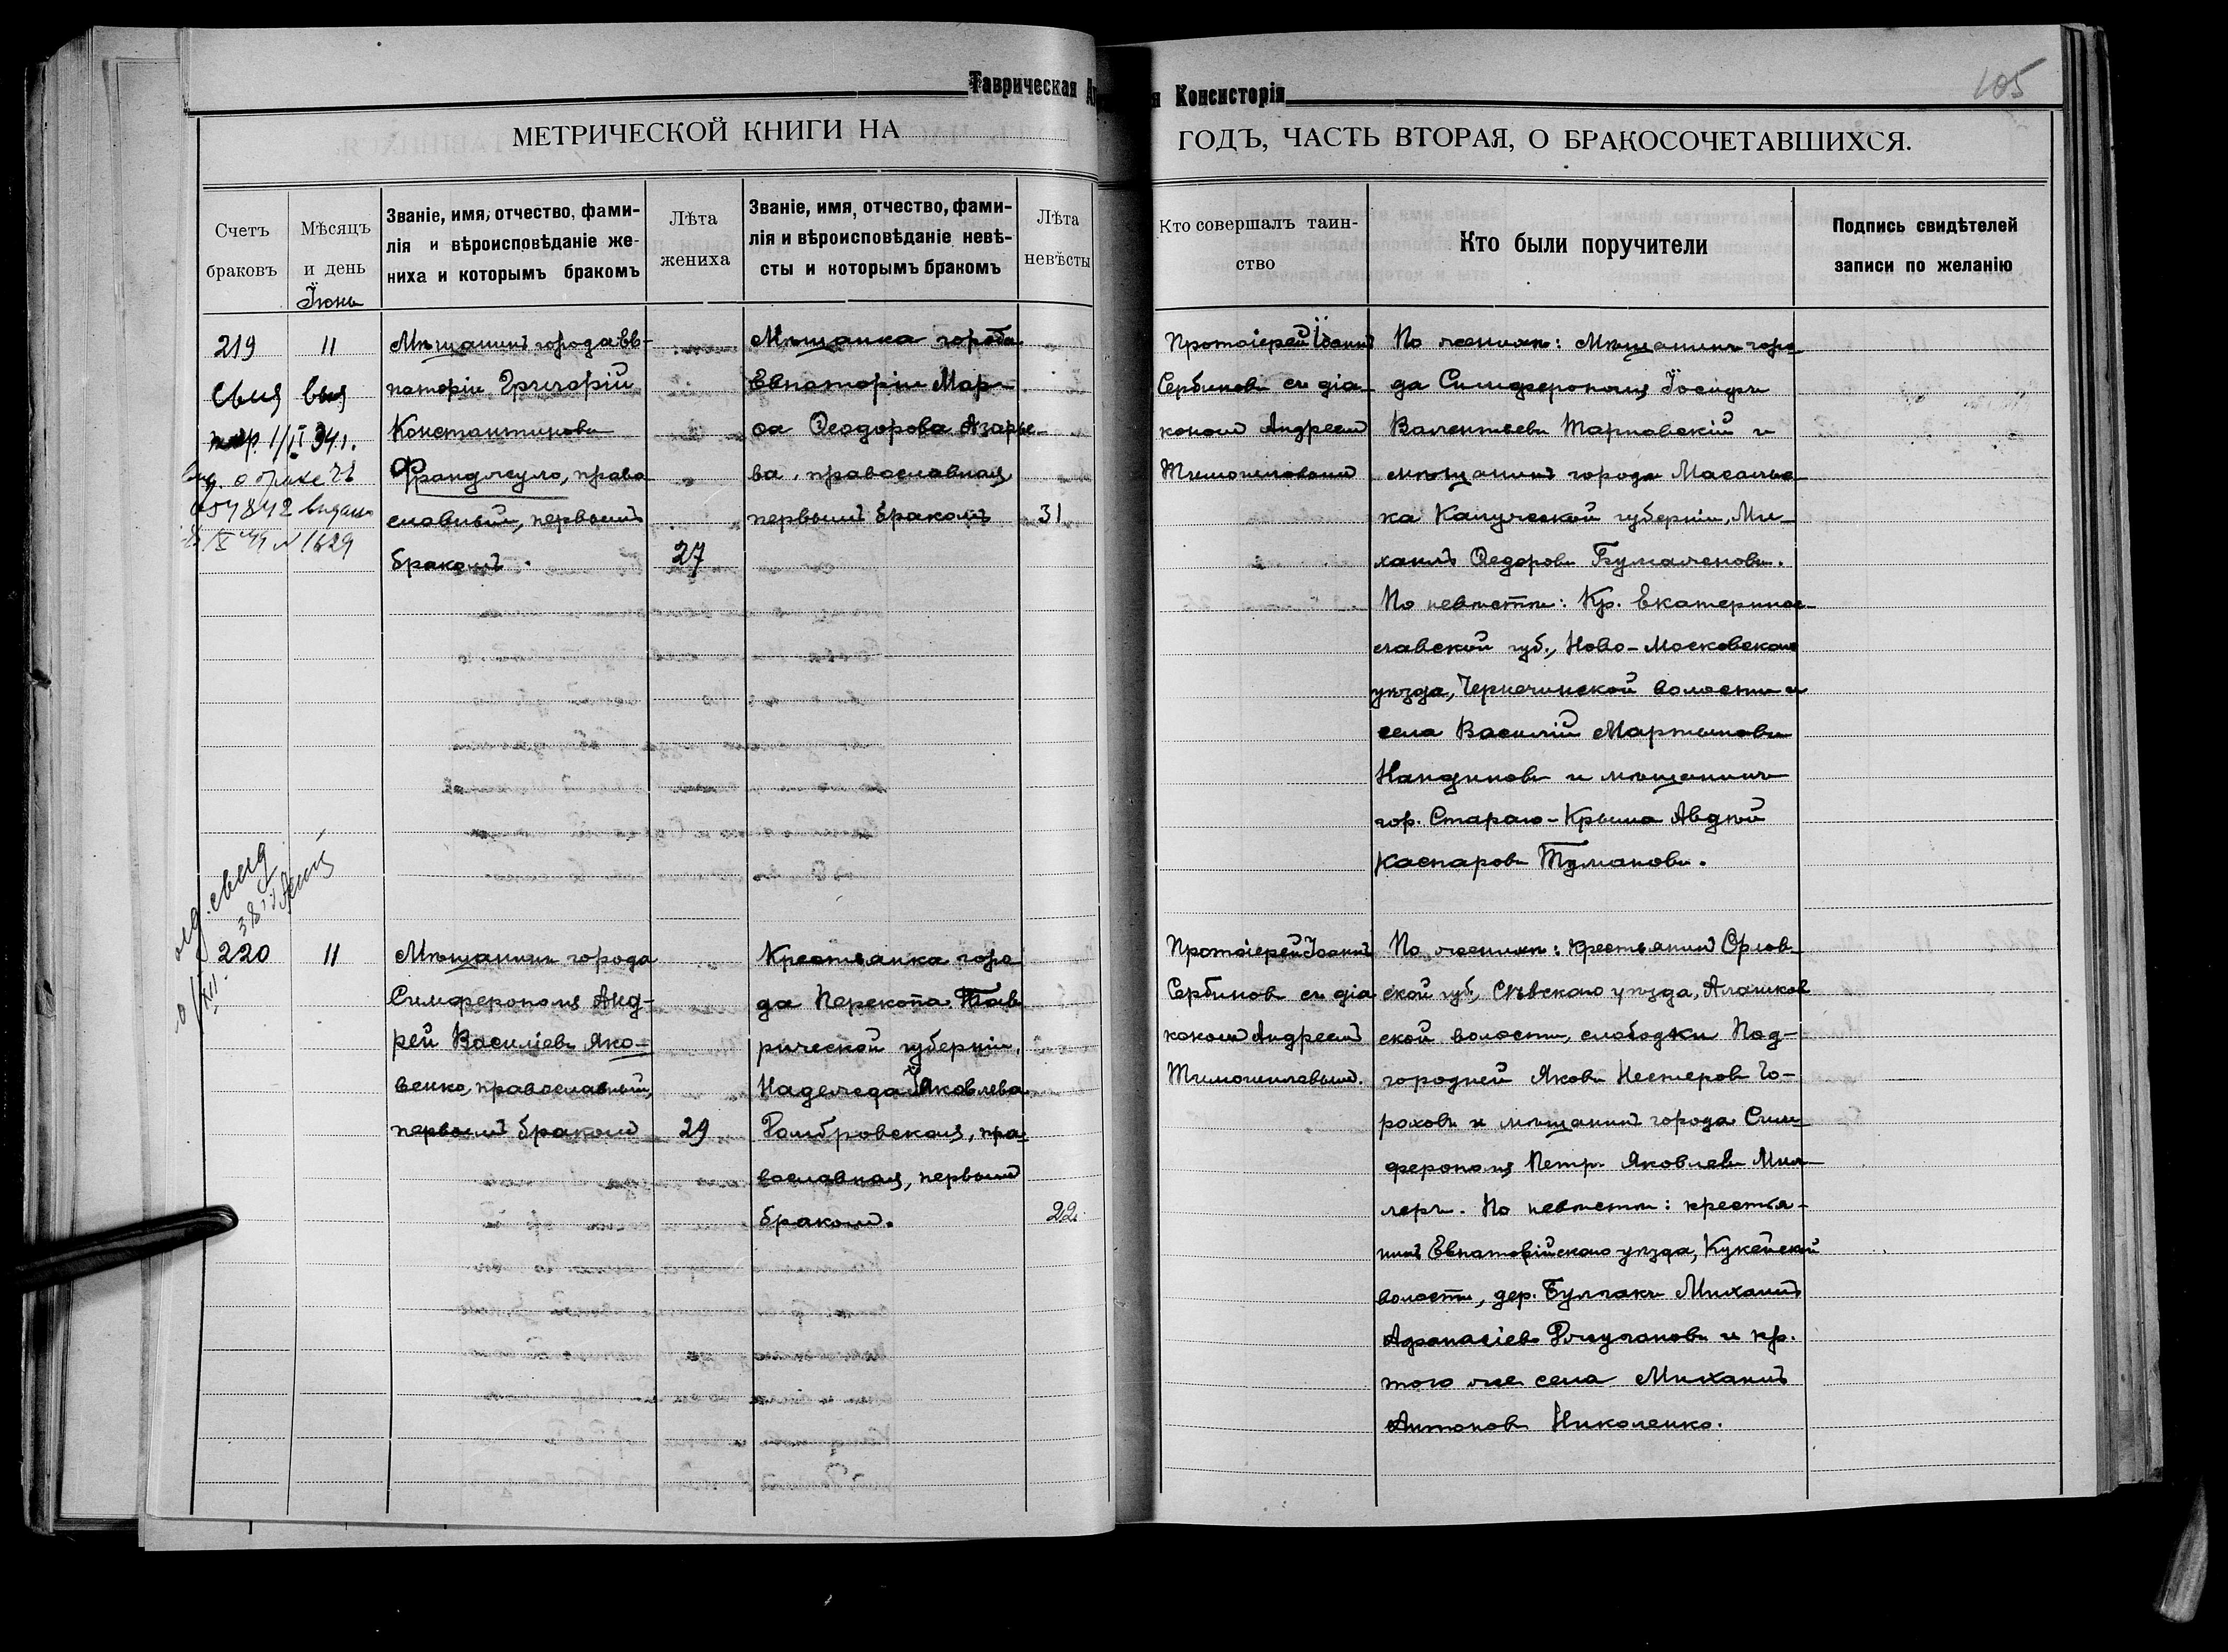 Таврическая
я Консисторія
105
МЕТРИЧЕСКОЙ КНИГИ НА
ГОДЪ, ЧАСТЬ ВТОРАЯ, О БРАКОСОЧЕТАВШИХСЯ.
Счетъ
браковъ
Мѣсяцъ
и день
Іюнь
Званіе, имя, отчество, фами-
лія и вѣроисповѣданіе же-
ниха и которымъ бракомъ
Лѣта
жениха
Званіе, имя, отчество, фами-
лія и вѣроисповѣданіе невѣ-
сты и которымъ бракомъ
Лѣта
невѣсты
Кто совершалъ таин-
ство
Кто были поручители
Подпись свидѣтелей
записи по желанію
219
11
Мѣщанинъ города Ев-
паторіи Григорій
Константиновъ
Франджуло, право
славный, первымъ
бракомъ.
27
Мѣщанка города
Евпаторіи Мар-
ѳа Ѳеодорова Азарье-
ва, православная
первымъ бракомъ
31
Протоіерей Іоаннъ
Сербиновъ съ діа-
кономъ Андреемъ
По женихѣ: Мѣщанинъ горо
да Симферополя Іосифъ
Валентьевъ Тарновскій и
мѣщанинъ города Масальс
ка Калужской губерніи, Ми-
хаилъ Ѳедоровъ Бумаженовъ.
По невѣстѣ: Кр. Екатеринос-
лавской губ., Ново-Московскаго
уѣзда, Черкечинской волости и
села Василій Мартыновъ
и мѣщанинъ
гор. Стараго-Крыма Авдѣй
Каспаровъ Тумановъ.
054842 выдано
220
11
Мѣщанинъ города
Симферополя Анд-
рей Василіевъ Яко-
венко, православный,
первымъ бракомъ
29
Крестьянка горо
да Перекопа Тав
рической губерніи,
Надежда Яковлева
Домбровская, пра
вославная, первымъ
бракомъ.
22.
Протоіерей Іоаннъ
Сербиновъ съ діа
кономъ Андреемъ
По женихѣ: Крестьянинъ Орлов
ской губ., Сѣвскаго уѣзда, Алешков
ской волости, слободки Под-
городней Яковъ Нестеровъ Го-
роховъ и мѣщанинъ города Сим-
ферополя Петръ Яковлевъ Мил-
леръ. По невѣстѣ: крестья-
нинъ Евпаторійскаго уѣзда, Кукейской
волости, дер. Булгакъ Михаилъ
Афанасіевъ и кр.
того же села Михаилъ
Антоновъ Николенко.